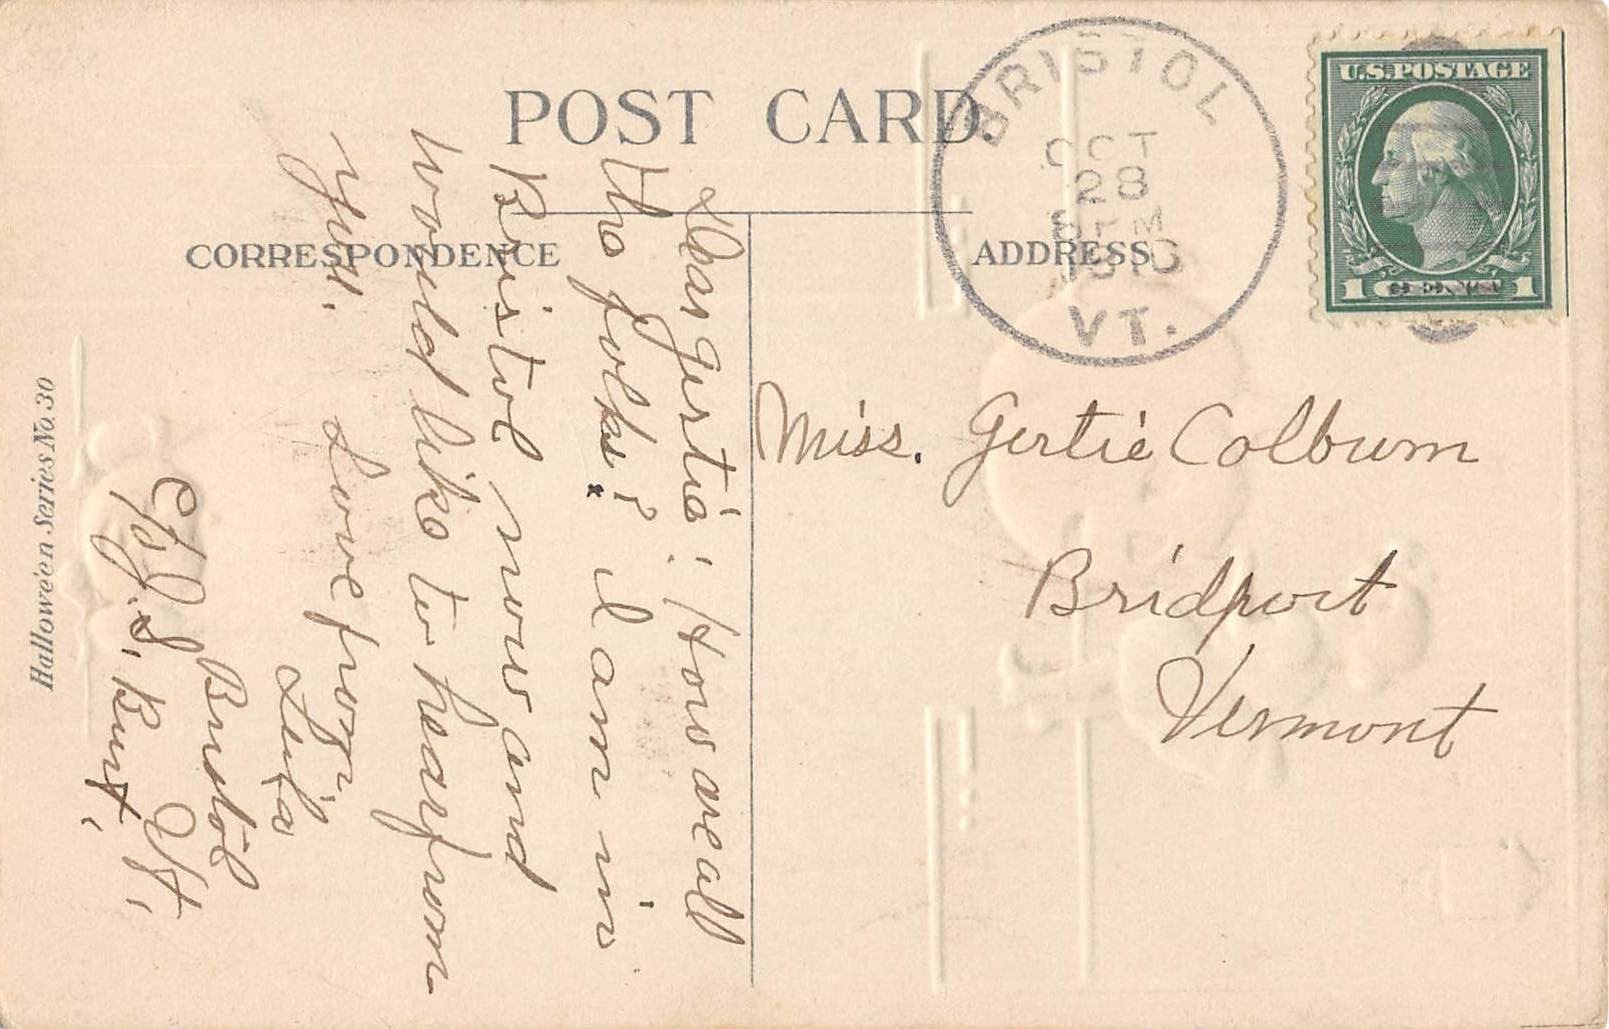 POST CARD.
CORRESPONDENCE
ADDRESS
BRISTOL
OCT
28
PM
VT.
U.S. POSTAGE
1 CENT 1
Miss. Gertie Colburn
Bridport
Vermont
Dear Gertie: How are all
the folks? I am in
Bristol now and
would like to hear from
you. Love from
Leila
Bristol
Vt.
c/o J. S. Burt,
Halloween Series No. 30